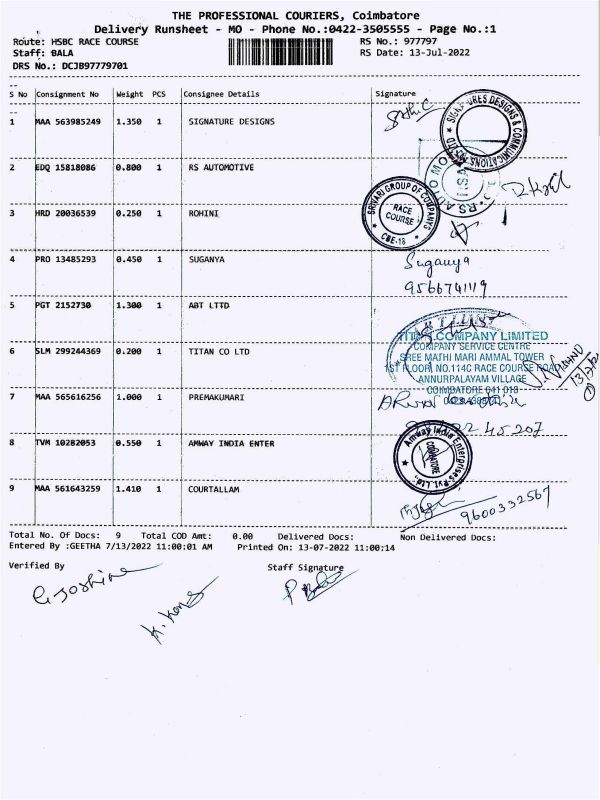 THE PROFESSIONAL COURIERS, Coimbatore
Delivery Runsheet - MO - Phone No.:0422-3505555 - Page No.:1
Route: HSBC RACE COURSE RS No.: 977797
Staff: BALA RS Date: 13-Jul-2022
DRS No.: DCJB97779701
S No Consignment No Weight PCS Consignee Details Signature
1 MAA 563985249 1.350 1 SIGNATURE DESIGNS
SIGNATURES DESIGNS & COMMUNICATIONS PVT LTD
2 EDQ 15818086 0.800 1 RS AUTOMOTIVE
RS AUTO MO
3 HRD 20036539 0.250 1 ROHINI
SRIVARI GROUP OF COMPANYS
RACE
COURSE
CBE-18
4 PRO 13485293 0.450 1 SUGANYA Suganya
9566741119
5 PGT 2152730 1.300 1 ABT LTTD
TITAN COMPANY LIMITED
COMPANY SERVICE CENTRE
6 SLM 299244369 0.200 1 TITAN CO LTD
SREE MATHI MARI AMMAL TOWER
1ST FLOOR, NO.114C RACE COURSE ROAD
ANNURPALAYAM VILLAGE
COIMBATORE 641 018
7 MAA 565616256 1.000 1 PREMAKUMARI
8 TVM 10282053 0.550 1 AMWAY INDIA ENTER
Amway India Enterprises Pvt. Ltd.,
COIMBATORE
9 MAA 561643259 1.410 1 COURTALLAM
9600332567
Total No. Of Docs: 9 Total COD Amt: 0.00 Delivered Docs: Non Delivered Docs:
Entered By :GEETHA 7/13/2022 11:00:01 AM Printed On: 13-07-2022 11:00:14
Verified By Staff Signature
G Joshine